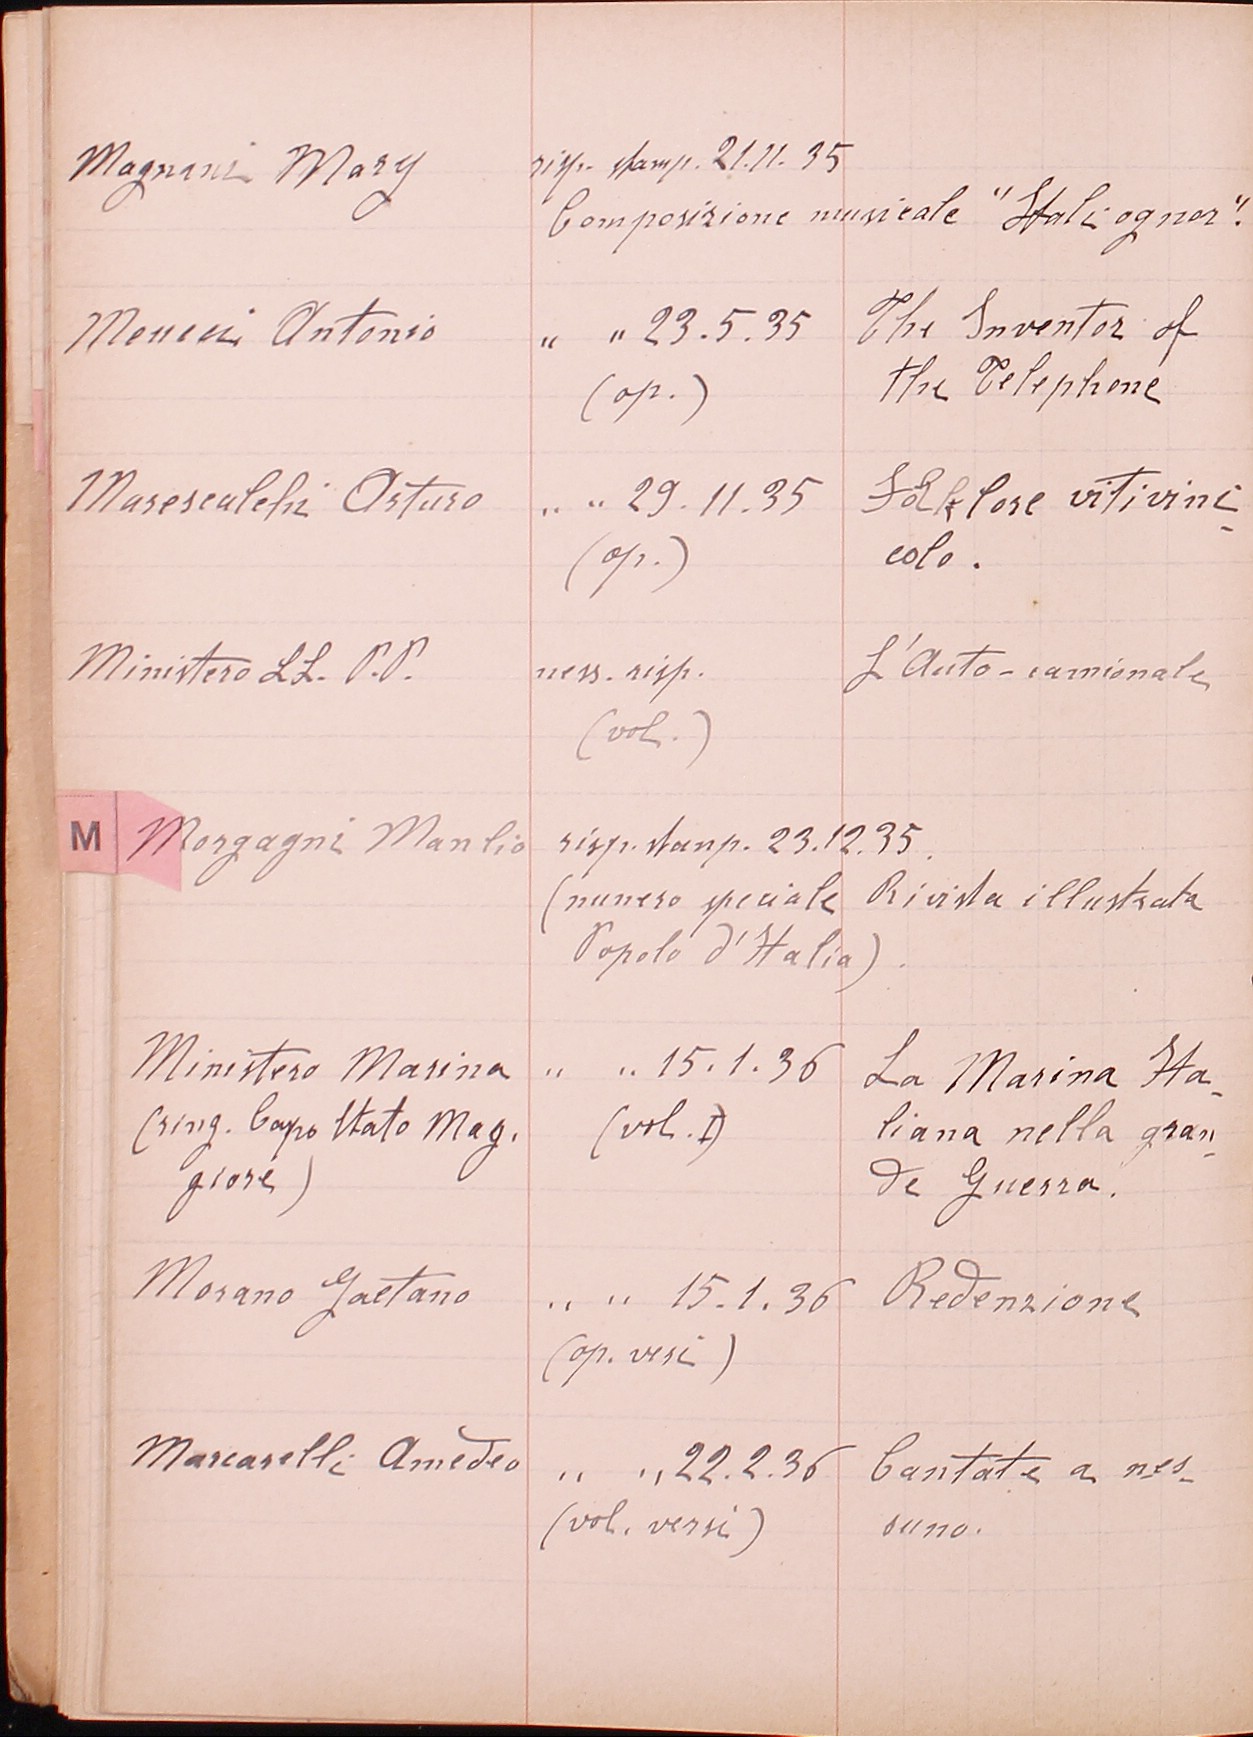 Magnani Mary risp. stamp. 21.11.35
Composizione musicale "Itali ognor".
Meucci Antonio " " 23.5.35 The Inventor of
(op.) the Telephone
Marescalchi Arturo " " 29.11.35 Folklore vitivini-
(op.) colo.
Ministero LL. P.P. ness. risp. L'Auto-camionale
(vol.)
M Morgagni Manlio risp. stamp. 23.12.35.
(numero speciale Rivista illustrata
Popolo d'Italia).
Ministero Marina " " 15.1.36 La Marina Ita-
(ring. Capo Stato Mag- (vol. I) liana nella gran-
giore) de Guerra.
Morano Gaetano " " 15.1.36 Redenzione
(op. versi)
Marcarelli Amedeo " " 22.2.36 Cantate a nes-
(vol. versi) suno.